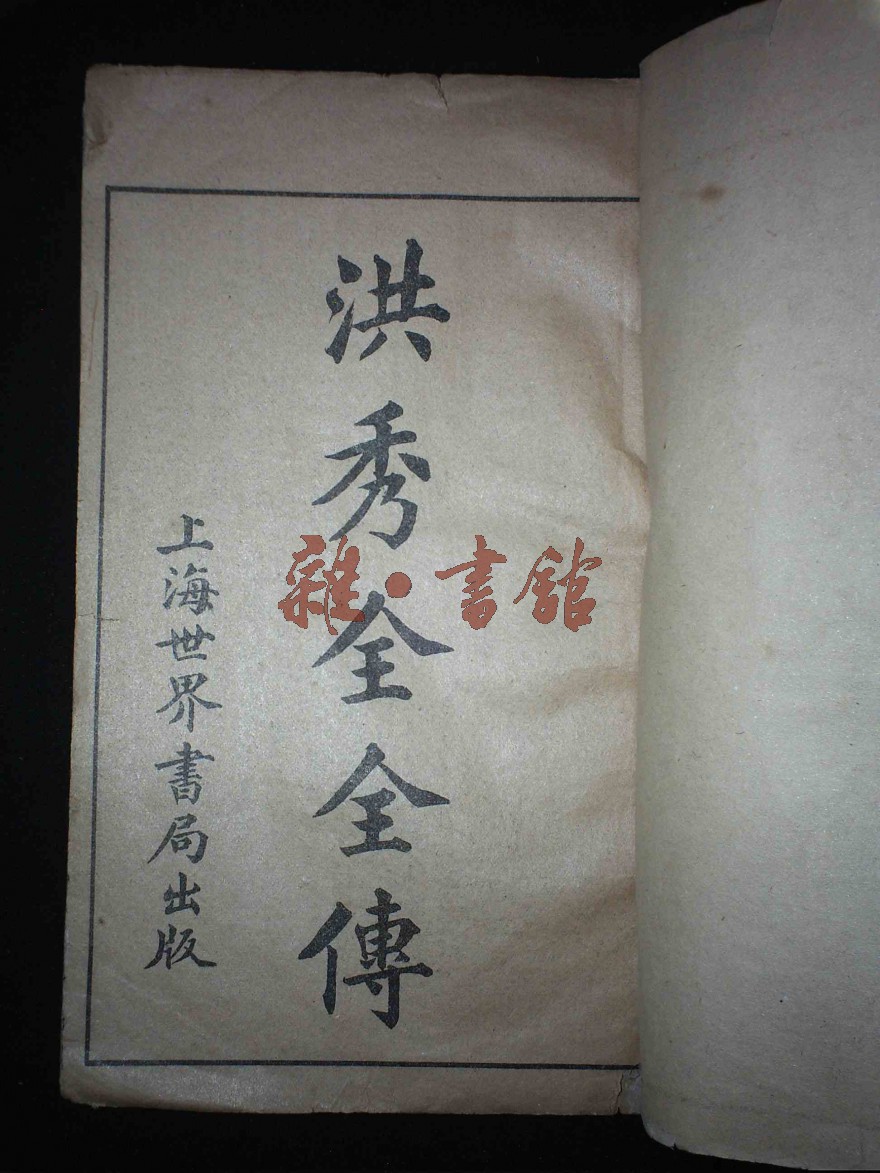 洪秀全全傳
上海世界書局出版
雜·書館